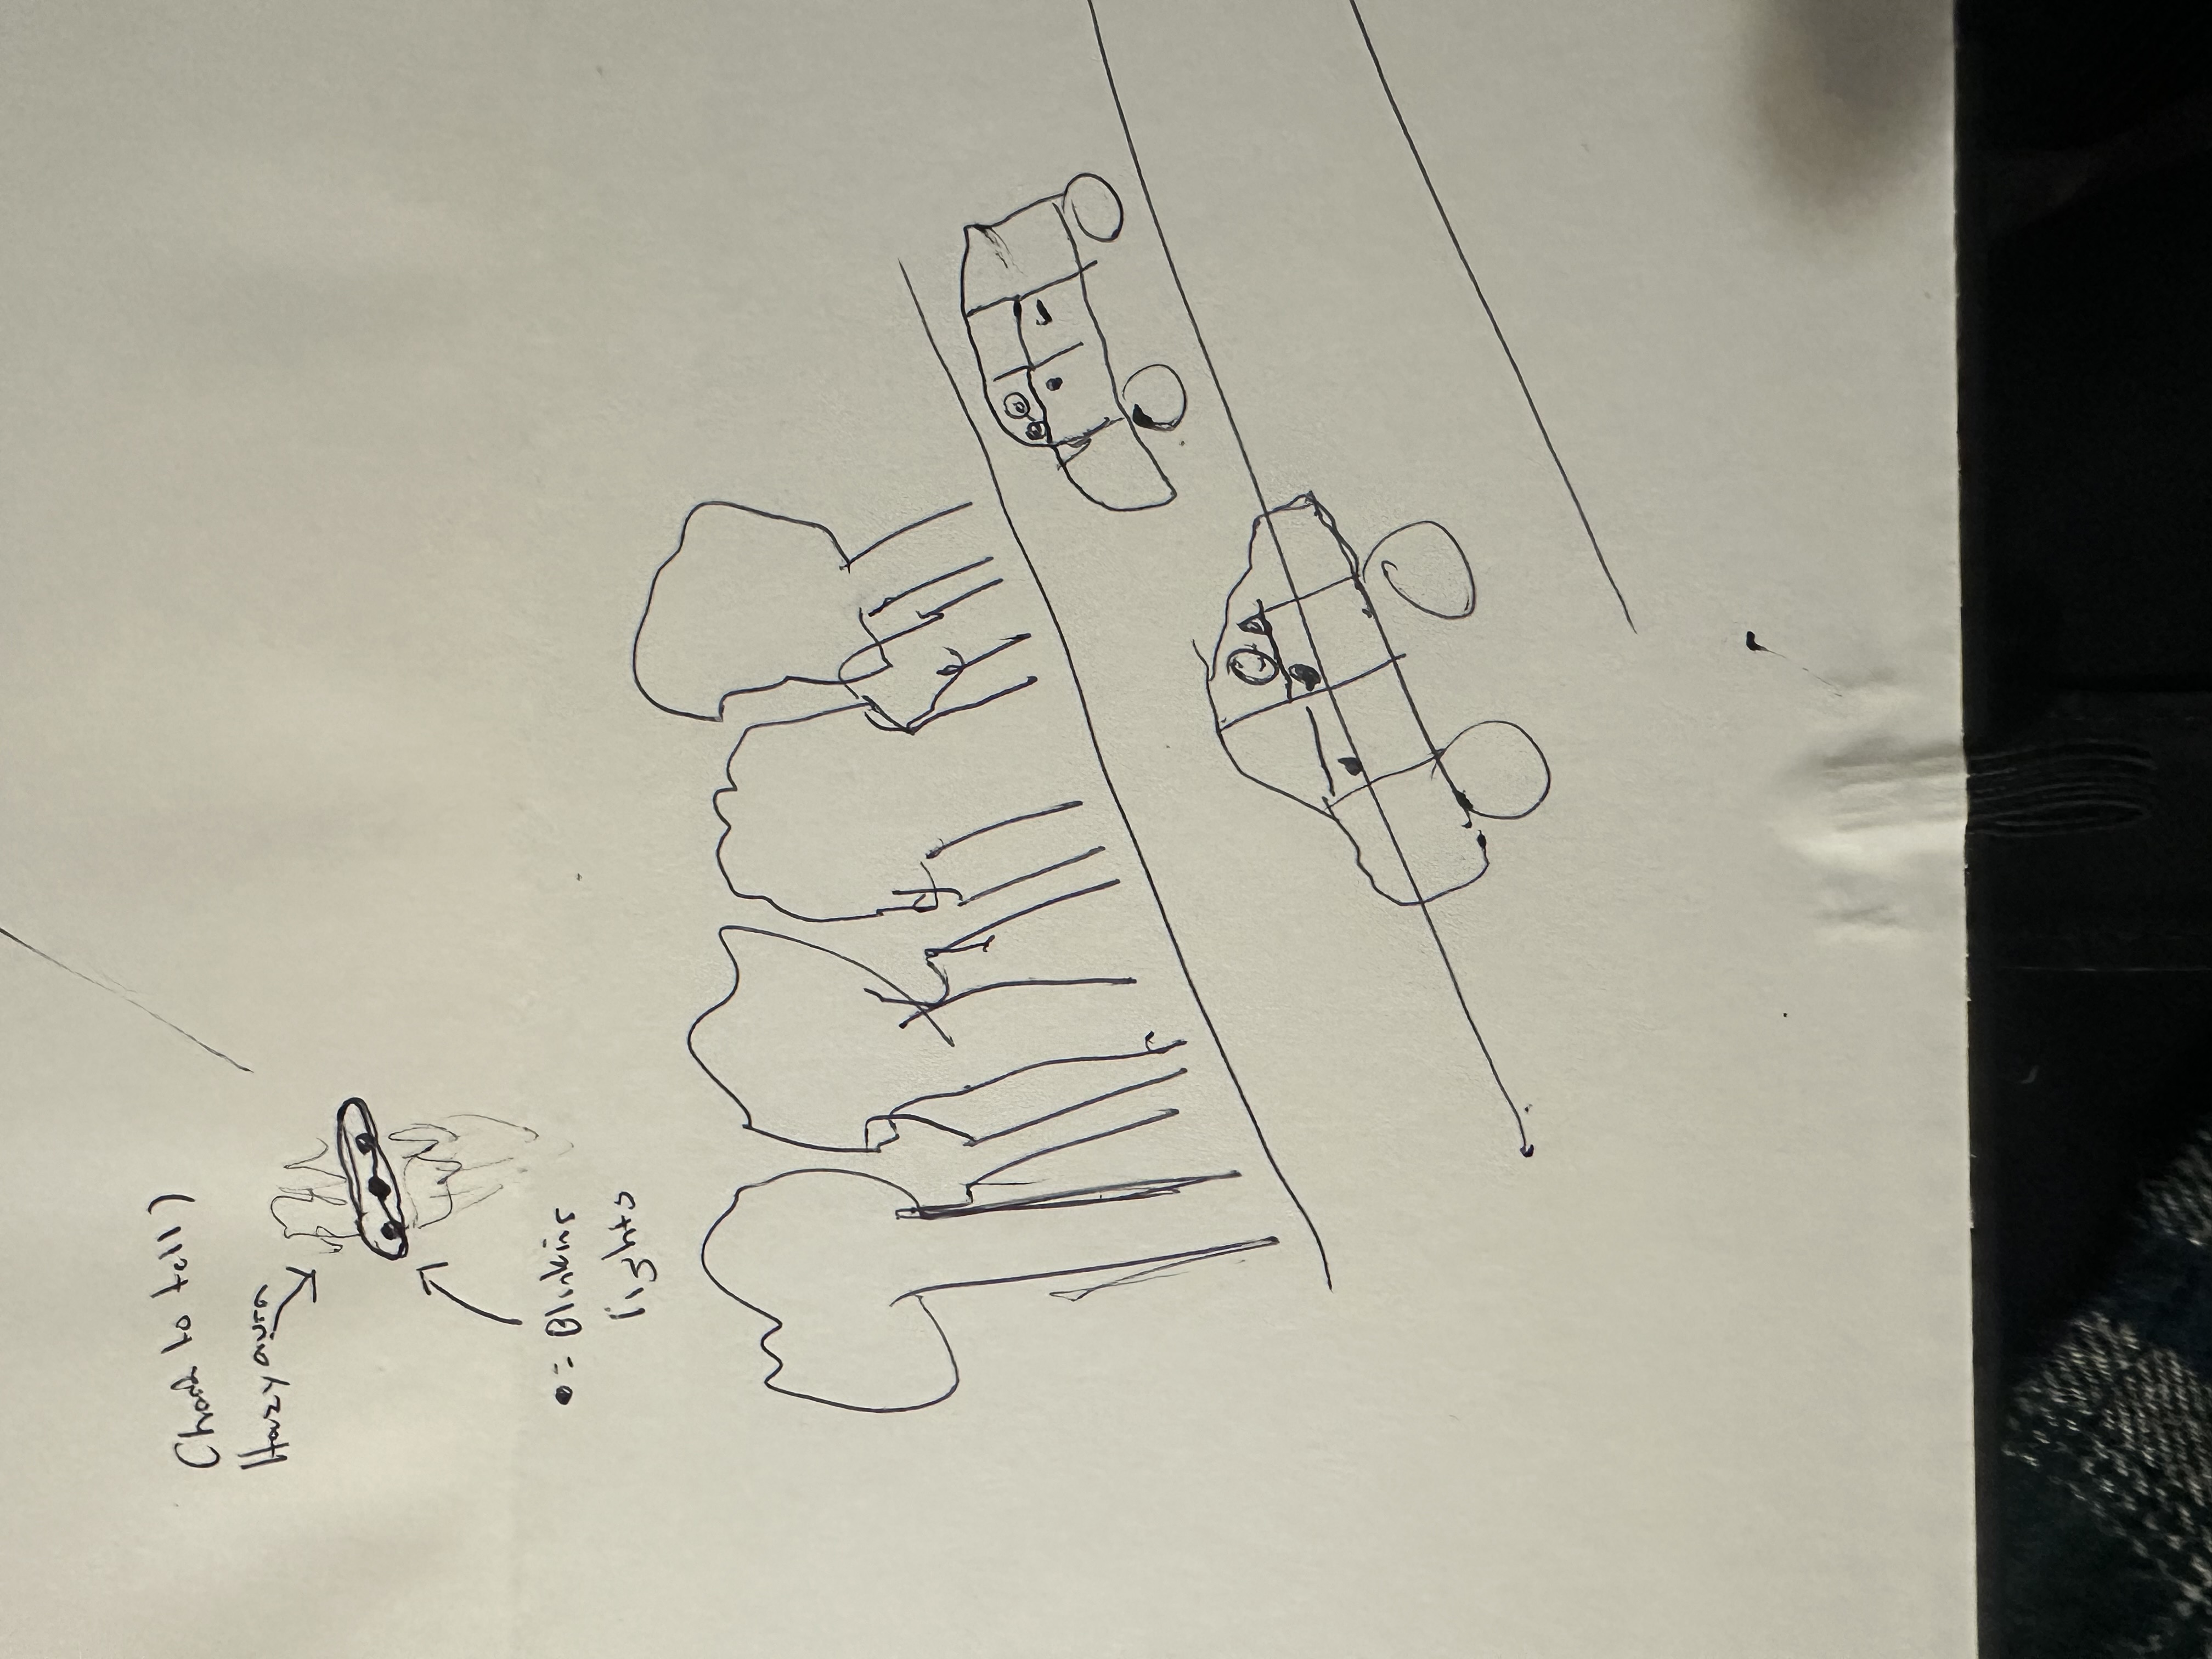 (hard to tell)
Hazy aura
•= Blinking
lights